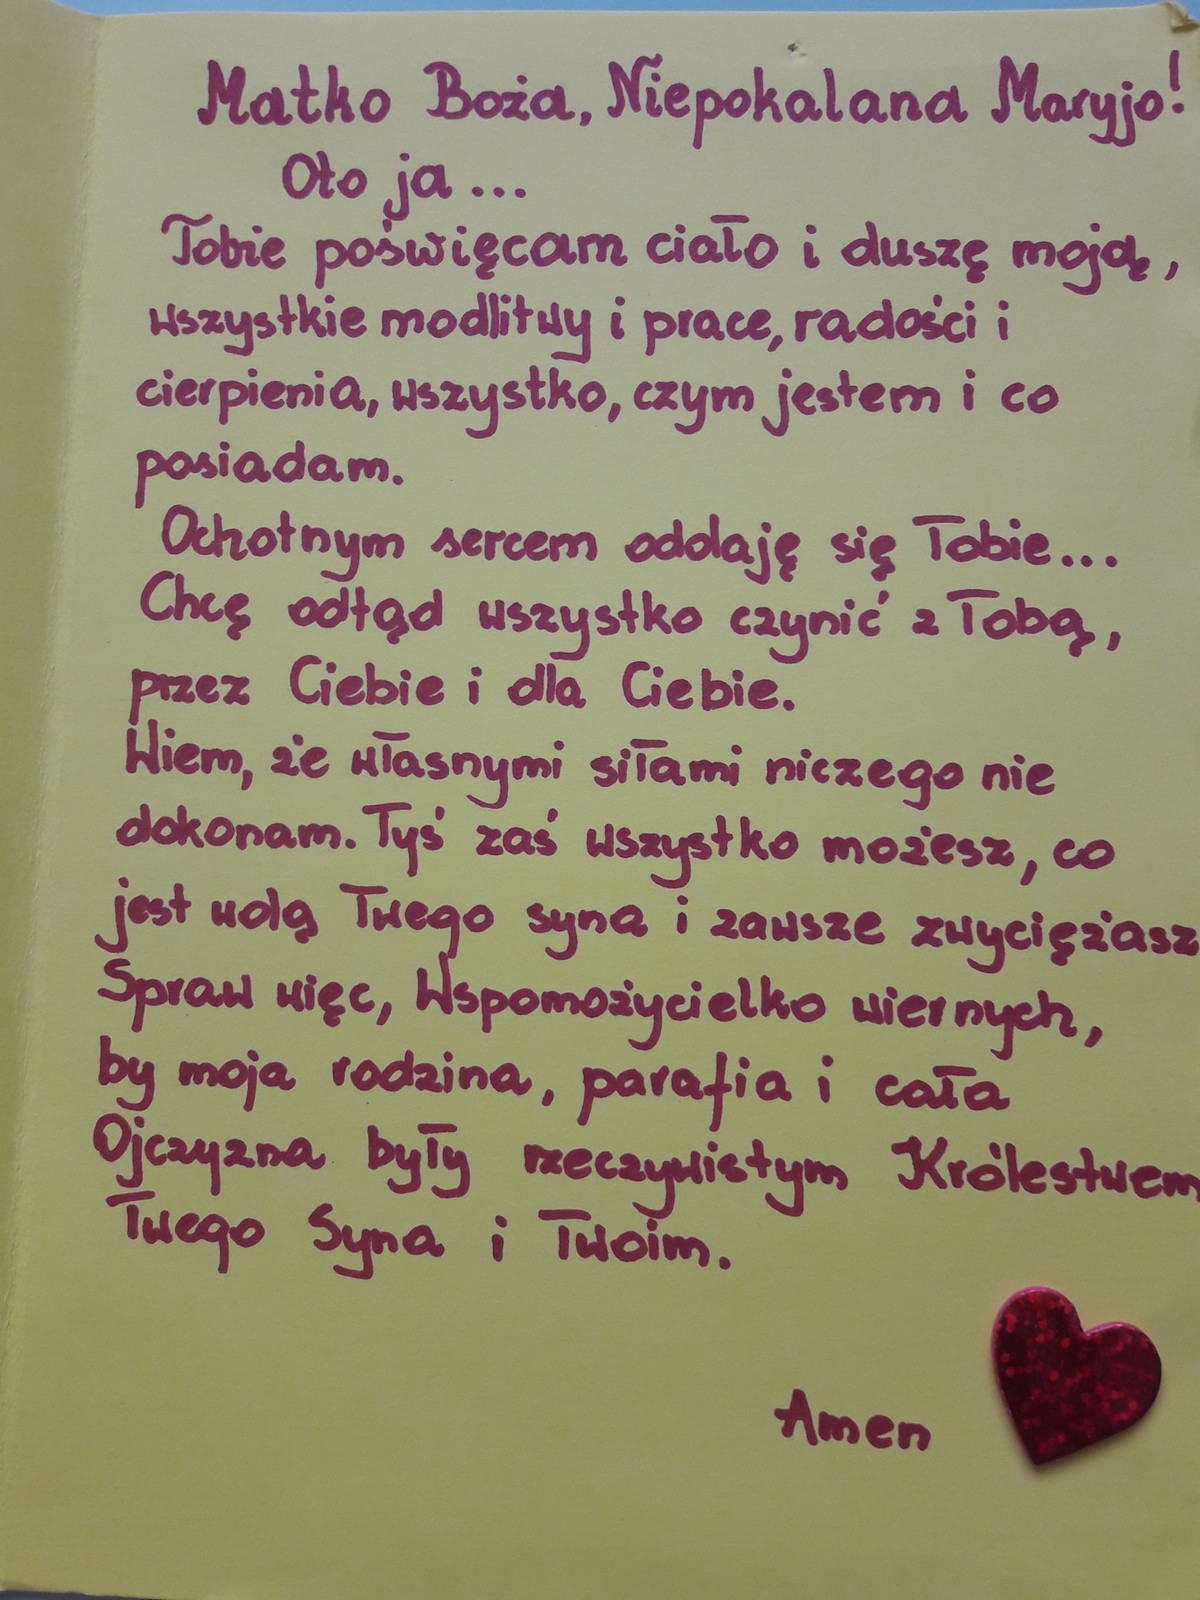 Matko Boża, Niepokalana Maryjo!
Oto ja...
Tobie poświęcam ciało i duszę moją,
wszystkie modlitwy i prace, radości i
cierpienia, wszystko, czym jestem i co
posiadam.
Ochotnym sercem oddaję się Tobie...
Chcę odtąd wszystko czynić z Tobą,
przez Ciebie i dla Ciebie.
Wiem, że własnymi siłami niczego nie
dokonam. Tyś zaś wszystko możesz, co
jest wolą Twego syna i zawsze zwyciężasz
Spraw więc, Wspomożycielko wiernych,
by moja rodzina, parafia i cała
Ojczyzna były rzeczywistym Królestwem
Twego Syna i Twoim.
Amen